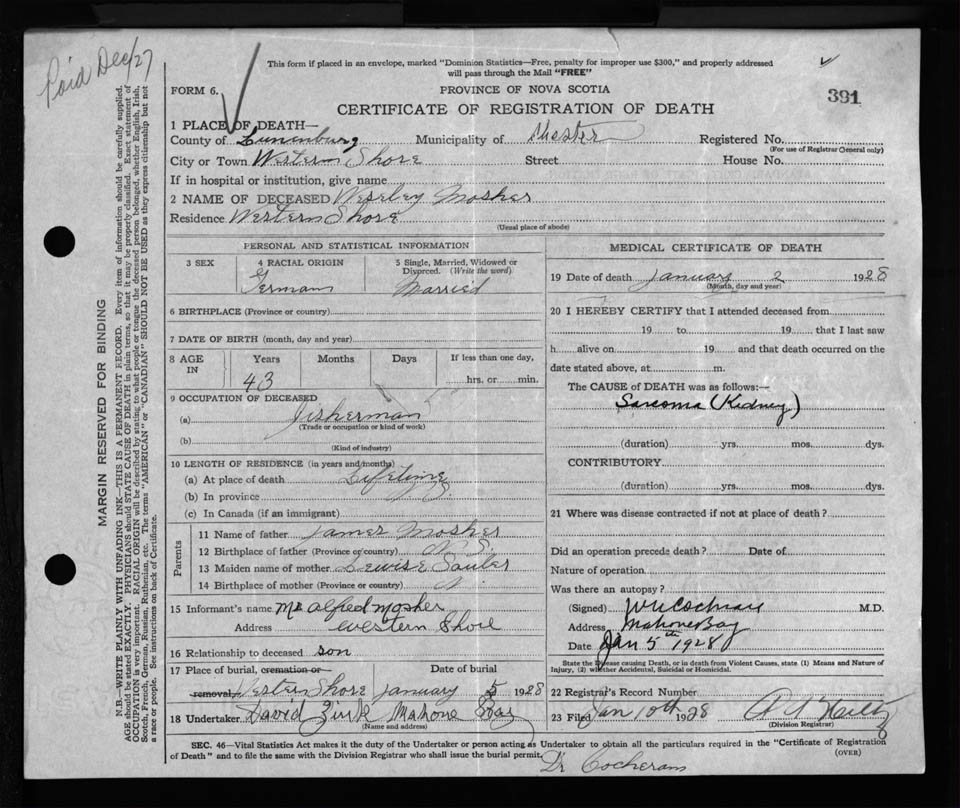 Paid Dec/27
This form if placed in an envelope, marked "Dominion Statistics—Free, penalty for improper use $300," and properly addressed
will pass through the Mail "FREE"
FORM 6.
PROVINCE OF NOVA SCOTIA
391
CERTIFICATE OF REGISTRATION OF DEATH
1 PLACE OF DEATH—
County of Lunenburg Municipality of Chester Registered No.
(For use of Registrar General only)
City or Town Western Shore Street House No.
If in hospital or institution, give name
2 NAME OF DECEASED Weseley Mosher
Residence Western Shore
(Usual place of abode)
PERSONAL AND STATISTICAL INFORMATION
3 SEX 4 RACIAL ORIGIN 5 Single, Married, Widowed or
Divorced. (Write the word)
German Married
6 BIRTHPLACE (Province or country)
7 DATE OF BIRTH (month, day and year)
8 AGE Years Months Days If less than one day,
IN 43 hrs. or min.
9 OCCUPATION OF DECEASED
(a) Fisherman
(Trade or occupation or kind of work)
(b)
(Kind of industry)
10 LENGTH OF RESIDENCE (in years and months)
(a) At place of death Lifetime
(b) In province
(c) In Canada (if an immigrant)
Parents
11 Name of father James Mosher
12 Birthplace of father (Province or country) N. S.
13 Maiden name of mother
14 Birthplace of mother (Province or country)
15 Informant's name Mr Alfred Mosher
Address Western Shore
16 Relationship to deceased son
17 Place of burial, cremation or Date of burial
removal, Western Shore January 5 1928
18 Undertaker David Zink Mahone Bay
(Name and address)
MEDICAL CERTIFICATE OF DEATH
19 Date of death January 2 1928
(Month, day and year)
20 I HEREBY CERTIFY that I attended deceased from
19 to 19 that I last saw
h alive on 19 and that death occurred on the
date stated above, at m.
The CAUSE of DEATH was as follows:—
Sarcoma (Kidney)
(duration) yrs. mos. dys.
CONTRIBUTORY
(duration) yrs. mos. dys.
21 Where was disease contracted if not at place of death?
Did an operation precede death? Date of
Nature of operation
Was there an autopsy?
(Signed) W Cochran M.D.
Address Mahone Bay
Date Jan 5th 1928
State the Disease causing Death, or in death from Violent Causes, state (1) Means and Nature of
Injury, (2) whether Accidental, Suicidal or Homicidal.
22 Registrar's Record Number
23 Filed Jan 10th 1928
(Division Registrar)
SEC. 46—Vital Statistics Act makes it the duty of the Undertaker or person acting as Undertaker to obtain all the particulars required in the "Certificate of Registration
of Death" and to file the same with the Division Registrar who shall issue the burial permit. (OVER)
Dr Cocheran
MARGIN RESERVED FOR BINDING
N.B.—WRITE PLAINLY WITH UNFADING INK—THIS IS A PERMANENT RECORD. Every item of information should be carefully supplied.
AGE should be stated EXACTLY. PHYSICIANS should STATE CAUSE OF DEATH in plain terms, so that it may be properly classified. Exact statement of
OCCUPATION is very important. RACIAL ORIGIN will be described by stating to what people or tongue the deceased person belonged, whether English, Irish,
Scotch, French, German, Russian, Ruthenian, etc. The terms "AMERICAN" or "CANADIAN" SHOULD NOT BE USED as they express citizenship but not
a race or people. See instructions on back of Certificate.